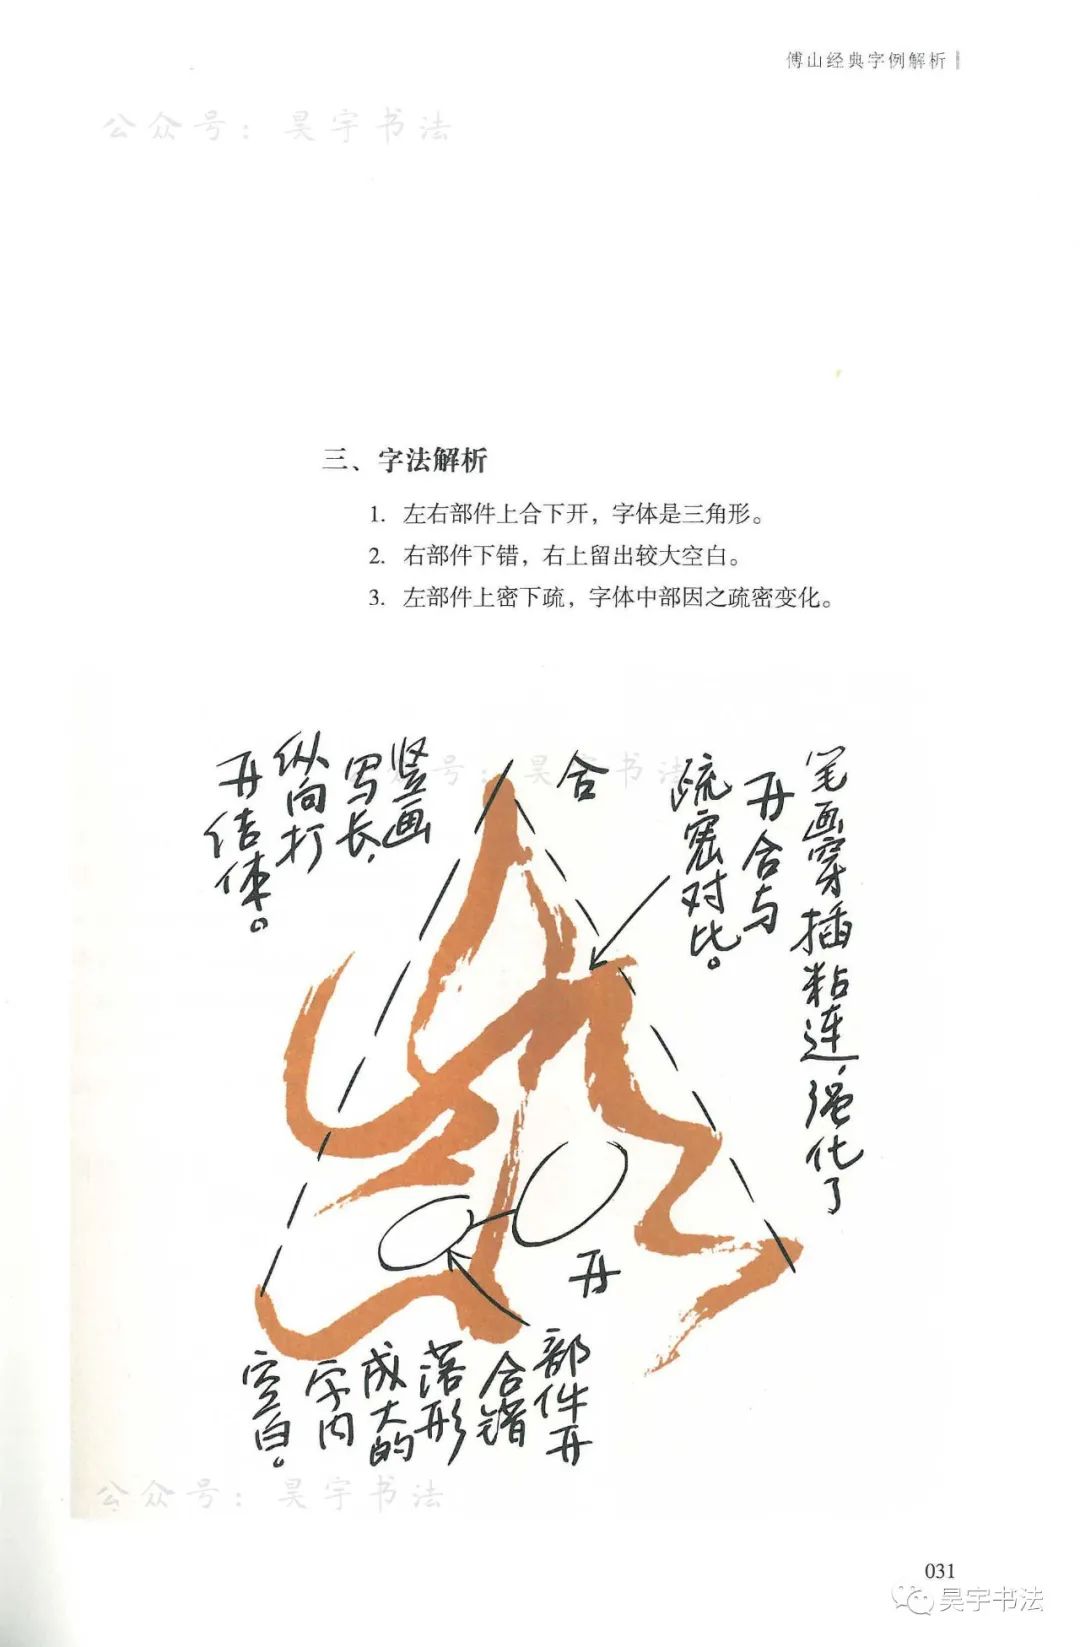 傅山经典字例解析
公众号：昊宇书法
三、字法解析
1. 左右部件上合下开，字体是三角形。
2. 右部件下错，右上留出较大空白。
3. 左部件上密下疏，字体中部因之疏密变化。
公众号：昊宇书法
竖画
写长，
纵向打
开结体。
合
笔画穿插粘连，强化了
开合与
疏密对比。
开
部件开
合错
落形
成大的
字内
空白。
公众号：昊宇书法
031
昊宇书法